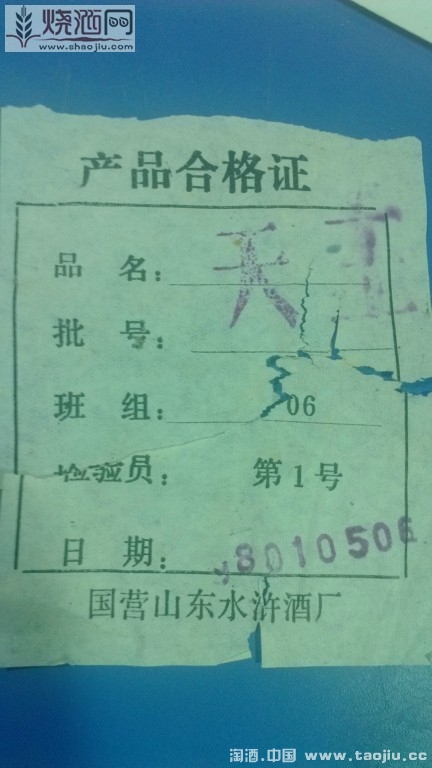 烧酒网
www.shaojiu.com
产品合格证
品 名：天王
批 号：
班 组： 06
检验员： 第1号
日 期： 8010506
国营山东水浒酒厂
淘酒.中国 www.taojiu.cc